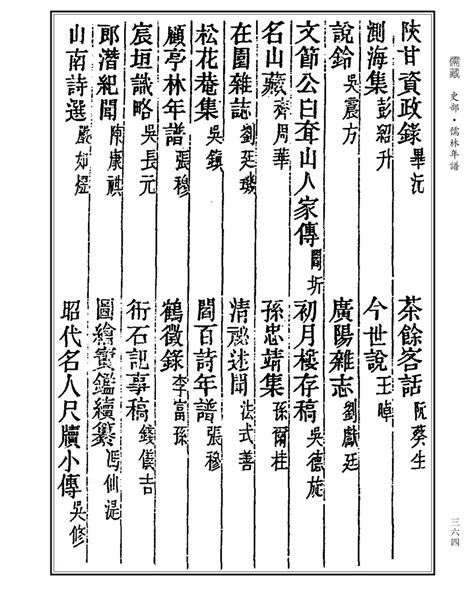 儒藏 史部・儒林年譜
陝甘資政錄 畢沅 茶餘客話 阮葵生
測海集 彭紹升 今世說 王晫
說鈴 吳震方 廣陽雜志 劉獻廷
文節公白耷山人家傳 閻圻 初月樓存稿 吳德旋
名山藏 齊周華 孫忠靖集 孫爾桂
在園雜誌 劉廷璣 清祕述聞 法式善
松花菴集 吳鎮 閻百詩年譜 張穆
顧亭林年譜 張穆 鶴徵錄 李富孫
宸垣識略 吳長元 衎石記事稿 錢儀吉
郎潛紀聞 陳康祺 圖繪寶鑑續纂 馮仙湜
山南詩選 嚴如熤 昭代名人尺牘小傳 吳修
三六四